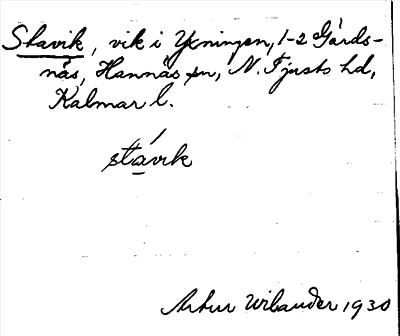 Stavik, vik i Yxningen, 1-2 Gårds-
näs, Hannäs sn, N. Tjusts hd,
Kalmar l.
stávik
Artur Wilander 1930